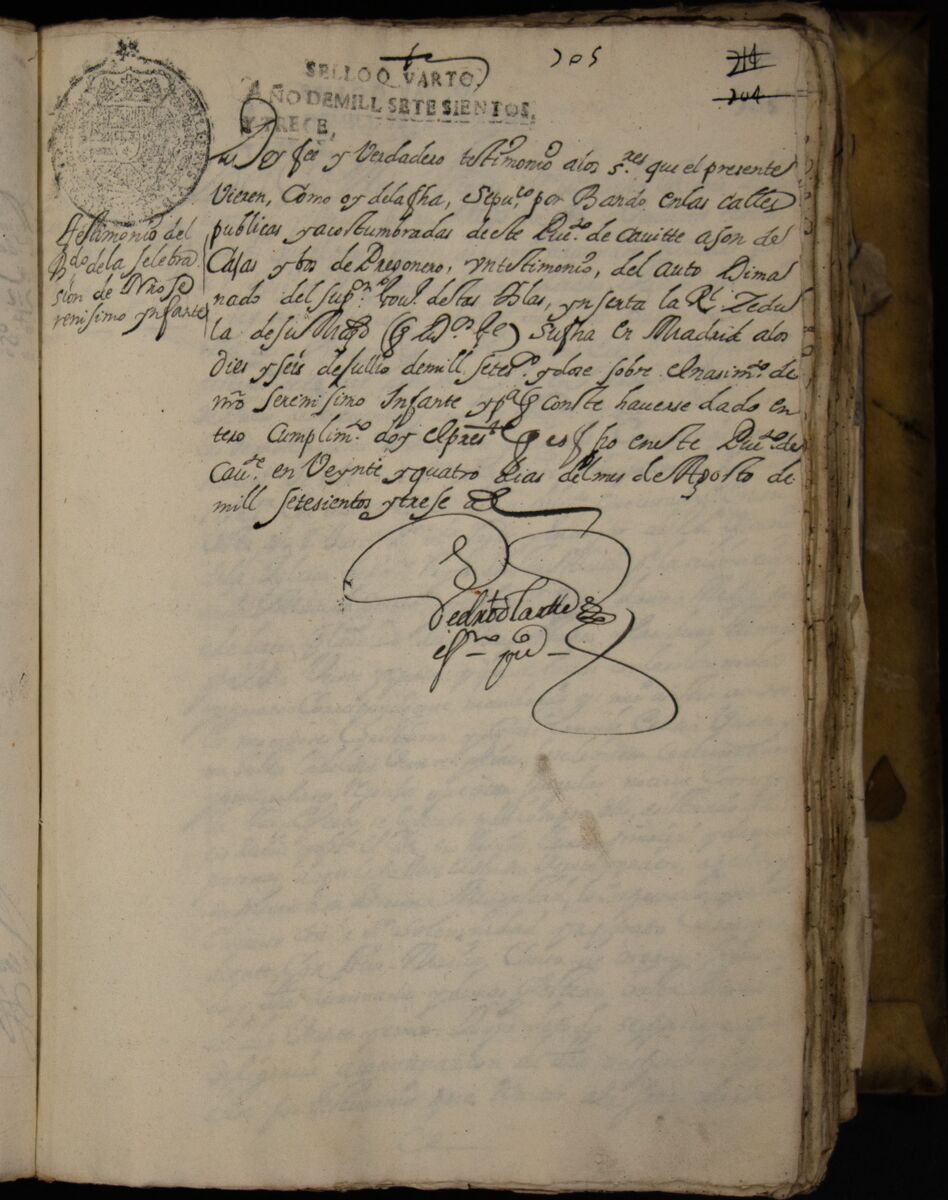 205
214
204
SELLO QVARTO,
AÑO DE MILL SETESIENTOS,
Y TRECE,
Testimonio del
Bdo de la selebra
sion de Nro Se
renisimo ynfante
Doy fee y Verdadero testimonio a los s.res que el presente
Vieren, Como oy dela fha, se pu.co por Bando en las calles
publicas y acostumbradas de este Pue.to de Cauitte a son de
Cajas y bos de Pregonero, yn testimonio, del auto Dima
nado del sup.or gou.no destas Yslas, ynserta la R.l Zedu
la de su Mag.d (q D.s g.e) su fha en Madrid a los
dies y seis de Jullio de mill setes.os y dose sobre el nasim.to de
nro serenisimo Infante y p.a q conste hauerse dado en
tero Cumplim.to doy el pres.te q es fho en este Pue.to de
Cau.te en Veynte y quatro dias del mes de Agosto de
mill setesientos y trese a.s
ess.no pu.co